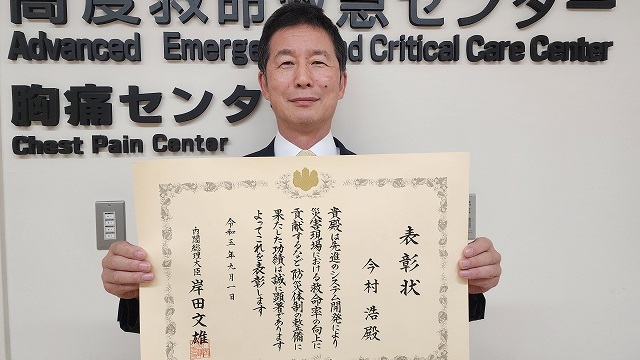 高度救命救急センター
Advanced Emerge d Critical Care Center
胸痛センタ
Chest Pain Center
表彰状
今村 浩 殿
貴殿は先進のシステム開発により
災害現場における救命率の向上に
貢献するなど防災体制の整備に
果たした功績は誠に顕著であります
よってこれを表彰します
令和五年九月一日
内閣総理大臣 岸田文雄